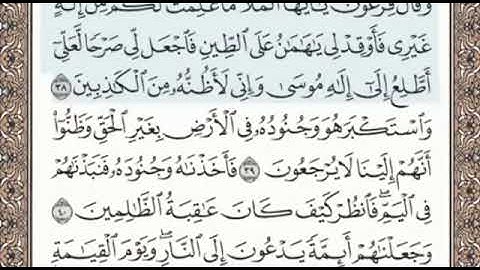 وَقَالَ فِرْعَوْنُ يَٰٓأَيُّهَا ٱلْمَلَأُ مَا عَلِمْتُ لَكُم مِّنْ إِلَٰهٍ
غَيْرِى فَأَوْقِدْ لِى يَٰهَٰمَٰنُ عَلَى ٱلطِّينِ فَٱجْعَل لِّى صَرْحًا لَّعَلِّىٓ
أَطَّلِعُ إِلَىٰٓ إِلَٰهِ مُوسَىٰ وَإِنِّى لَأَظُنُّهُۥ مِنَ ٱلْكَٰذِبِينَ ٣٨
وَٱسْتَكْبَرَ هُوَ وَجُنُودُهُۥ فِى ٱلْأَرْضِ بِغَيْرِ ٱلْحَقِّ وَظَنُّوٓا۟
أَنَّهُمْ إِلَيْنَا لَا يُرْجَعُونَ ٣٩ فَأَخَذْنَٰهُ وَجُنُودَهُۥ فَنَبَذْنَٰهُمْ
فِى ٱلْيَمِّ ۖ فَٱنظُرْ كَيْفَ كَانَ عَٰقِبَةُ ٱلظَّٰلِمِينَ ٤٠
وَجَعَلْنَٰهُمْ أَئِمَّةً يَدْعُونَ إِلَى ٱلنَّارِ ۖ وَيَوْمَ ٱلْقِيَٰمَةِ